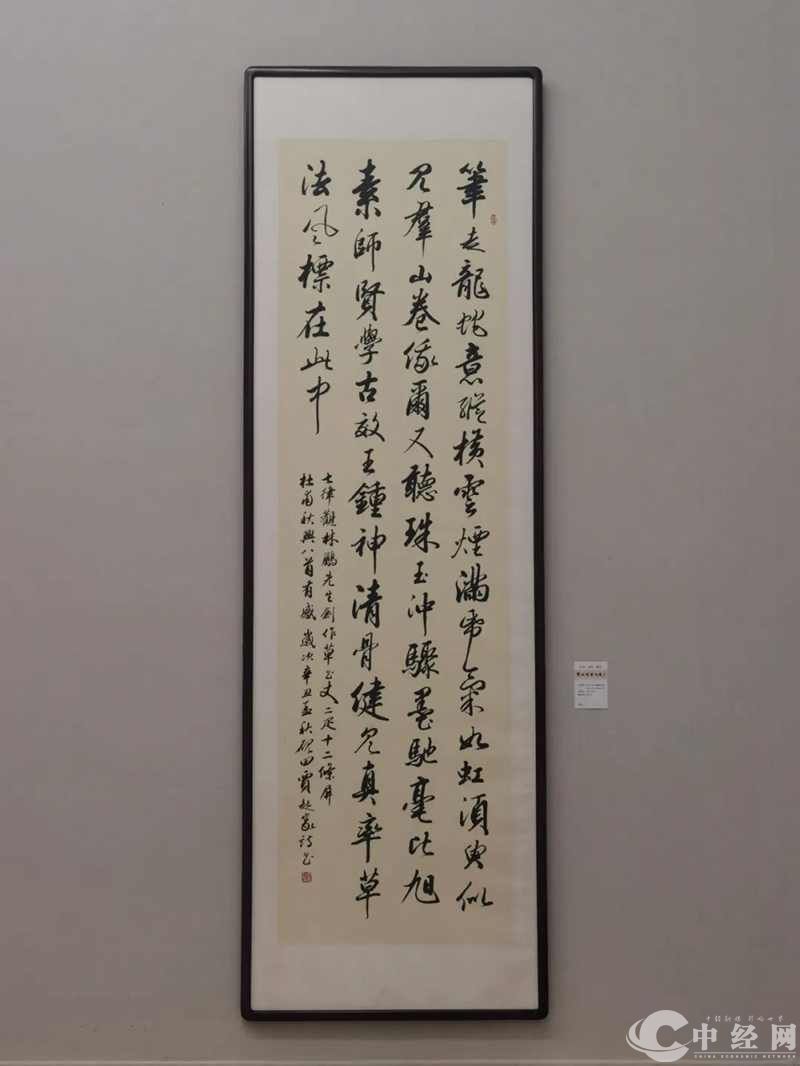 筆走龍蛇意縱橫雲煙滿帋氣如虹須臾似
見羣山卷俄爾又聽珠玉沖驟墨馳毫比旭
素師賢學古效王鍾神清骨健見真率草
法風標在此中
七律觀林鵬先生創作草書丈二疋十二條屏
杜甫秋興八首有感歲次辛丑孟秋硯田賈起家詩書
中经网
CHINA ECONOMIC NETWORK